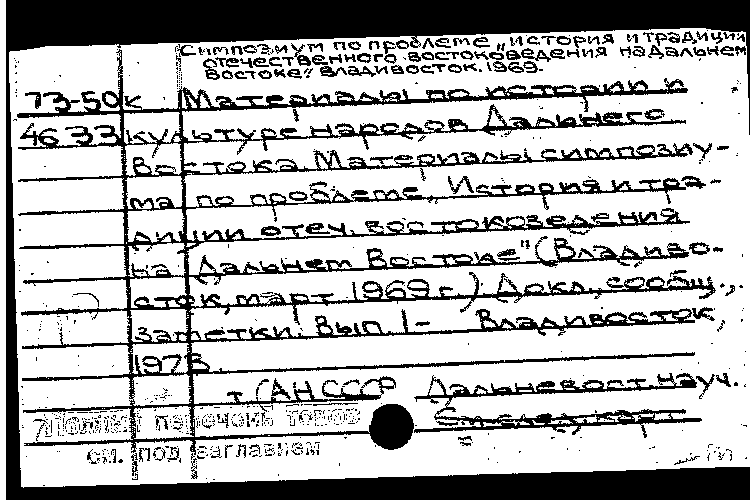 Симпозиум по проблеме „История и традиции
отечественного востоковедения на Дальнем
Востоке". Владивосток. 1969.
73-50к Материалы по истории и
4633 культуре народов Дальнего
Востока. Материалы симпозиу-
ма по проблеме „История и тра-
диции отеч. востоковедения
на Дальнем Востоке" (Владиво-
сток, март 1969 г.) Докл., сообщ.,
заметки. Вып. 1- Владивосток,
1973.
т. (АН СССР Дальневост. науч.
Полный перечень томов См. след. карт.
см. под заглавием